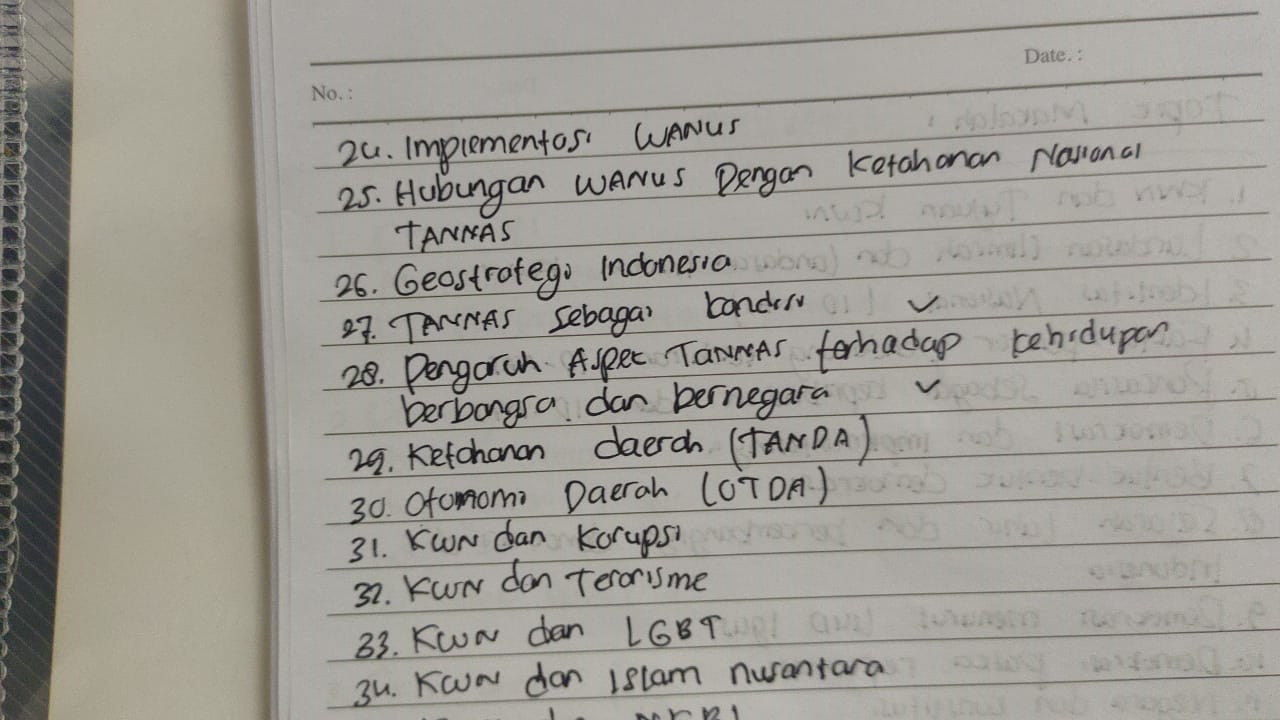 No. :
Date. :
24. Implementasi WANUS
25. Hubungan WANUS Dengan Ketahanan Nasional
TANNAS
26. Geostrategi Indonesia
27. TANNAS sebagai kondisi ✓
28. Pengaruh Aspek TANNAS terhadap kehidupan
berbangsa dan bernegara ✓
29. Ketahanan daerah (TANDA)
30. Otomomi Daerah (OTDA)
31. KWN dan Korupsi
32. KWN dan Terorisme
33. KWN dan LGBT
34. KWN dan Islam nusantara